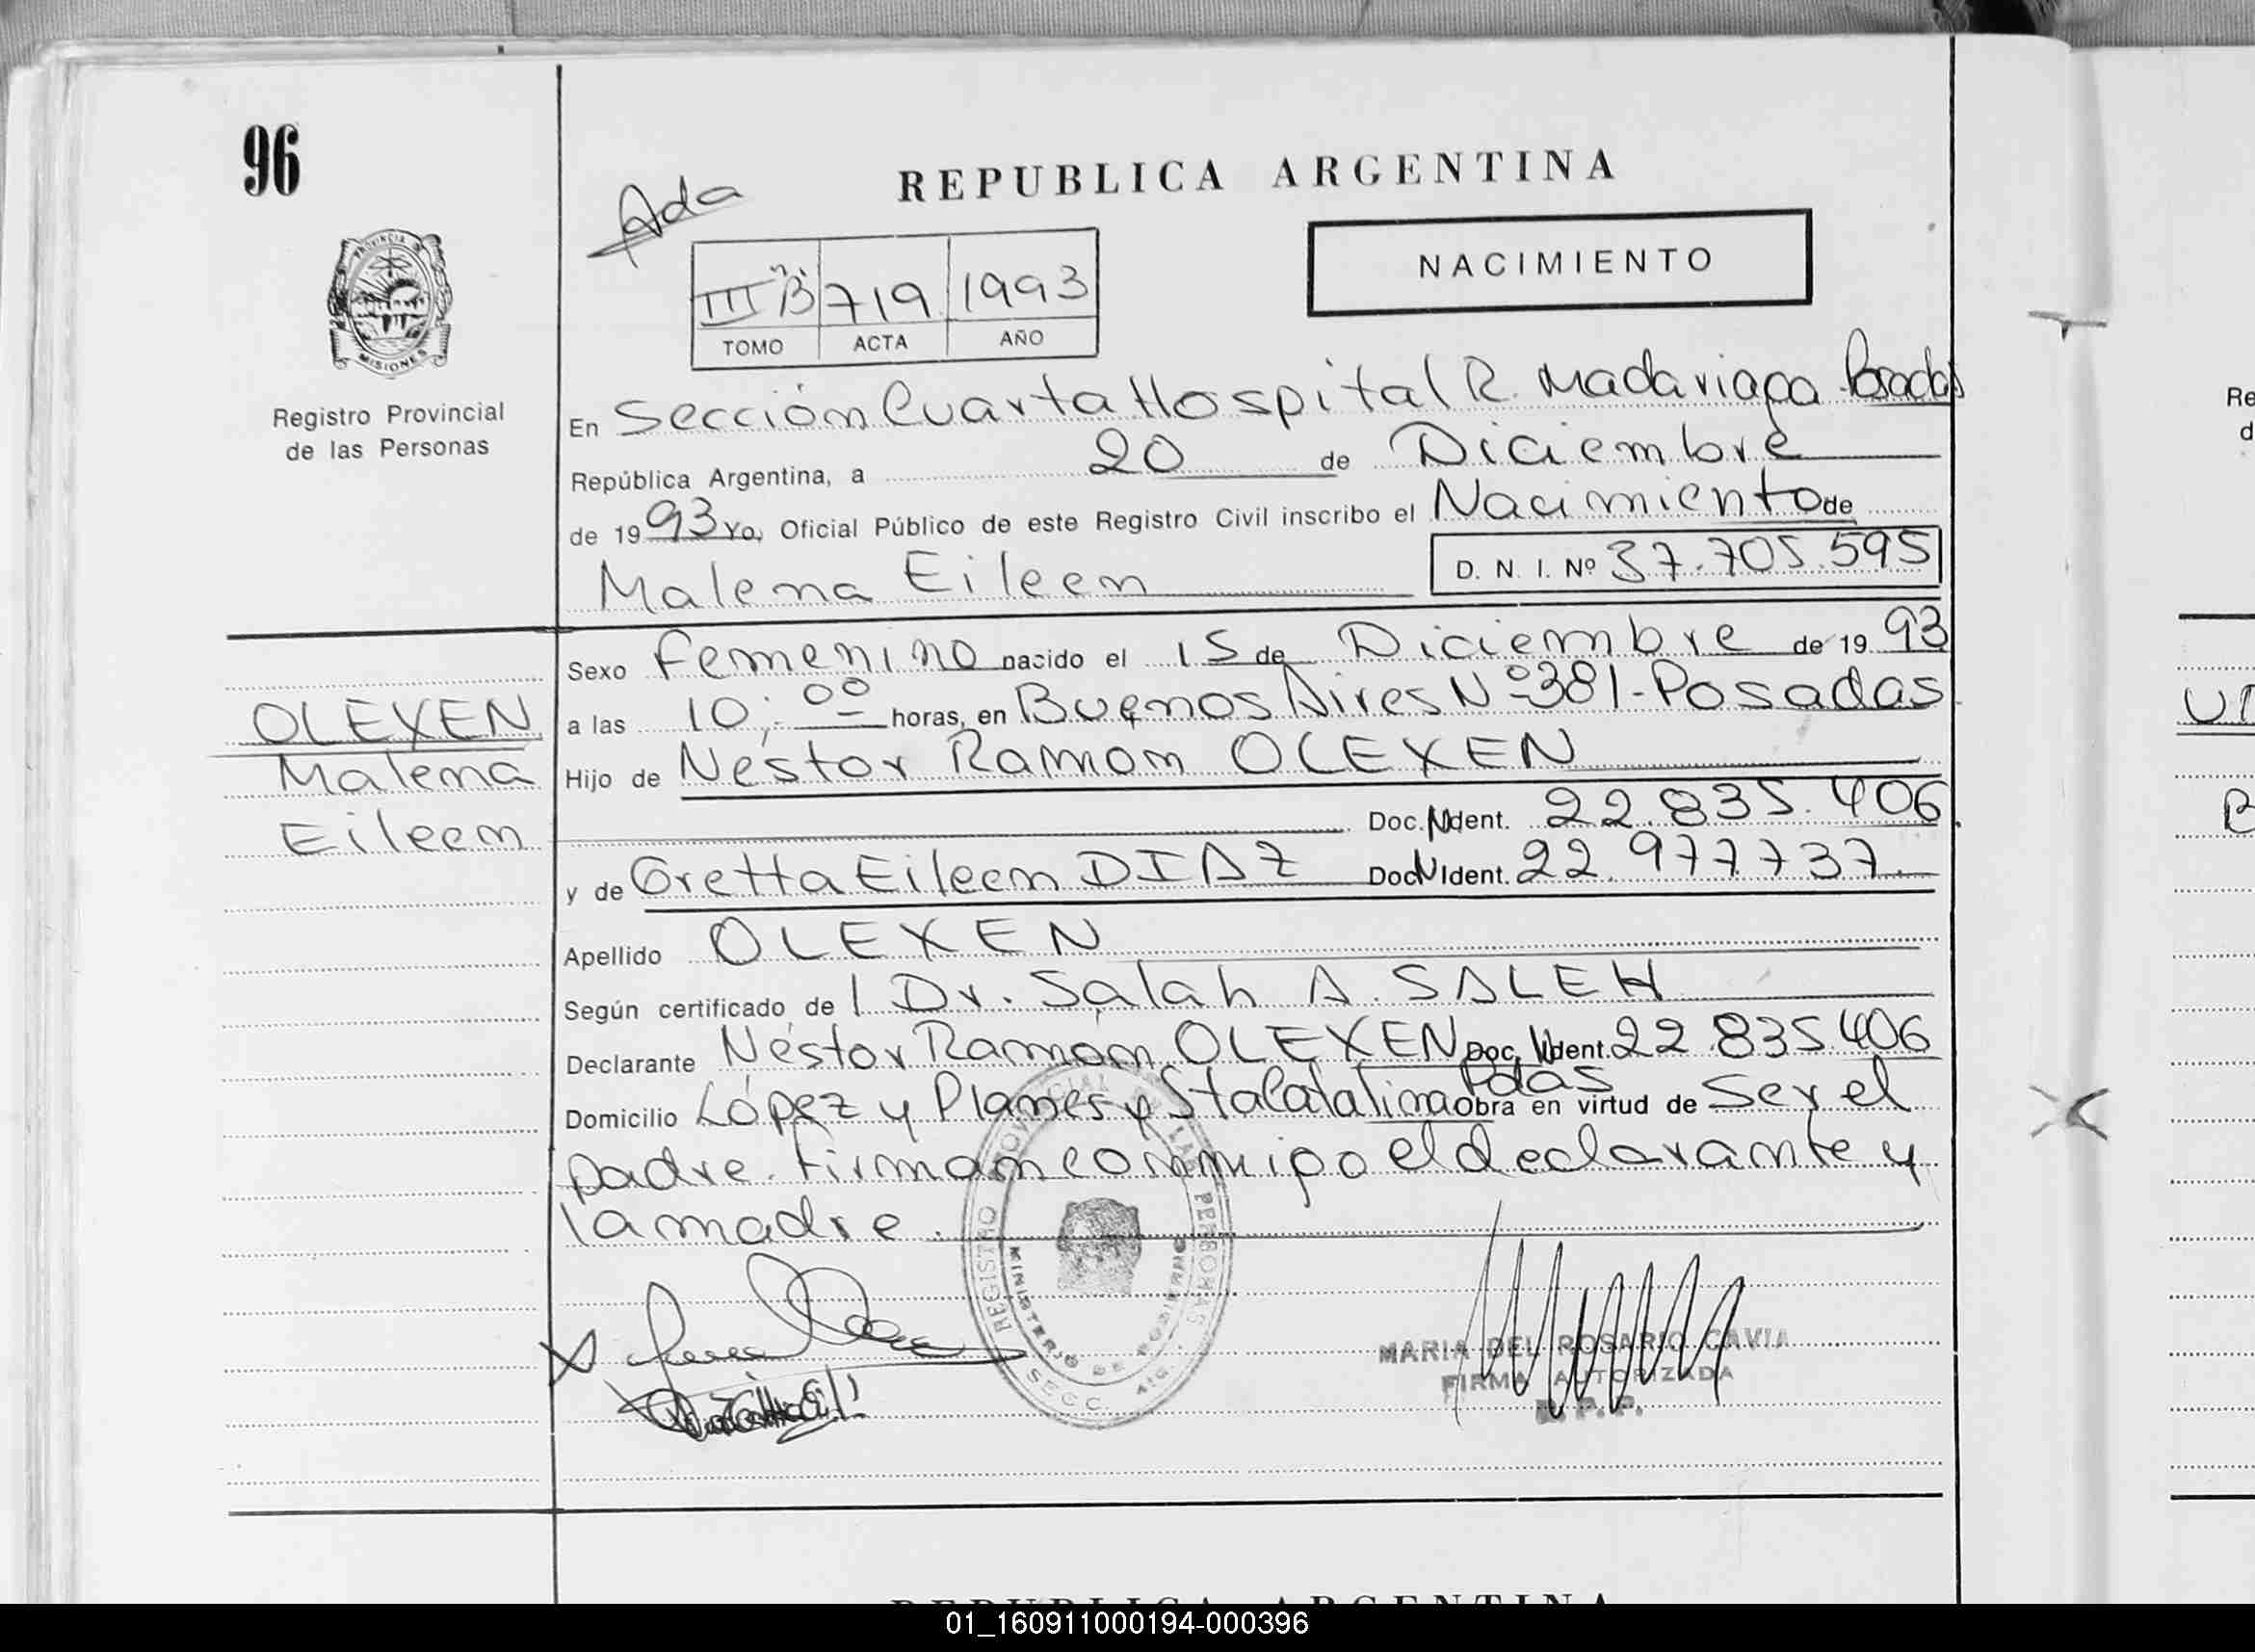 96
Ada
REPUBLICA ARGENTINA
NACIMIENTO
III B 719 1993
TOMO ACTA AÑO
PROVINCIA DE MISIONES
Registro Provincial
de las Personas
En Sección Cuarta Hospital R. Madariaga Posadas
República Argentina, a 20 de Diciembre
de 1993 Yo, Oficial Público de este Registro Civil inscribo el Nacimiento de
Malena Eileen D. N. I. Nº 37.705.595
Sexo Femenino nacido el 15 de Diciembre de 1993
a las 10:00 horas, en Buenos Aires Nº 381-Posadas
Hijo de Néstor Ramón OLEXEN
Doc. N Ident. 22.835.406
y de Gretta Eileen DIAZ Doc N Ident. 22.977.737.
Apellido OLEXEN
Según certificado de l Dr. Salah A. SALEH
Declarante Néstor Ramón OLEXEN Doc. N Ident. 22.835.406
Domicilio López y Planes y Sta Catalina Pdas obra en virtud de Ser el
padre. Firman conmigo el declarante y
la madre.
OLEXEN
Malena
Eileen
REGISTRO PROVINCIAL DE LAS PERSONAS
MINISTERIO DE GOBIERNO
SECC. 4ta.
MARIA DEL ROSARIO CAVIA
FIRMA AUTORIZADA
R. P. P.
Re
d
REPUBLICA ARGENTINA
01_160911000194-000396